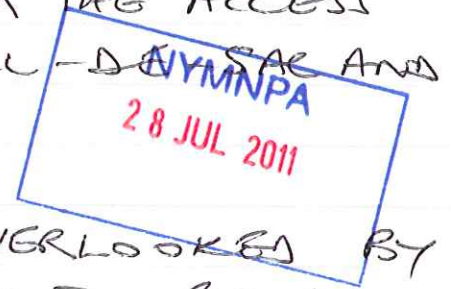 THE ACCESS
-DE-SAC AND
NYMNPA
28 JUL 2011
OVERLOOKED BY